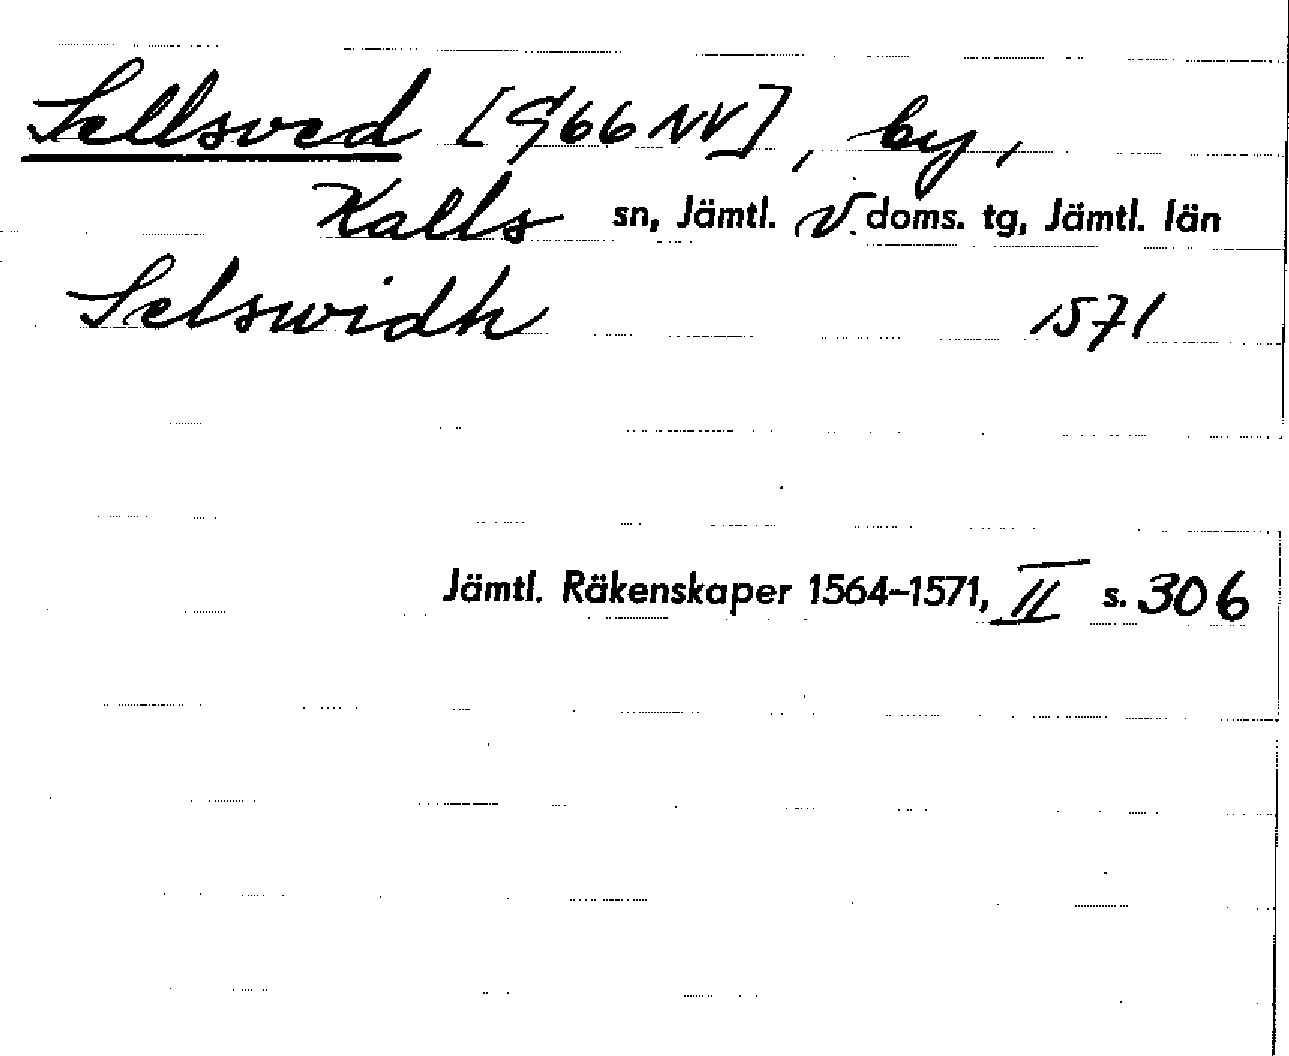 Sellsved [G66NV], by,
Kalls sn, Jämtl. V. doms. tg, Jämtl. län
Selswidh 1571
Jämtl. Räkenskaper 1564–1571, II s. 306